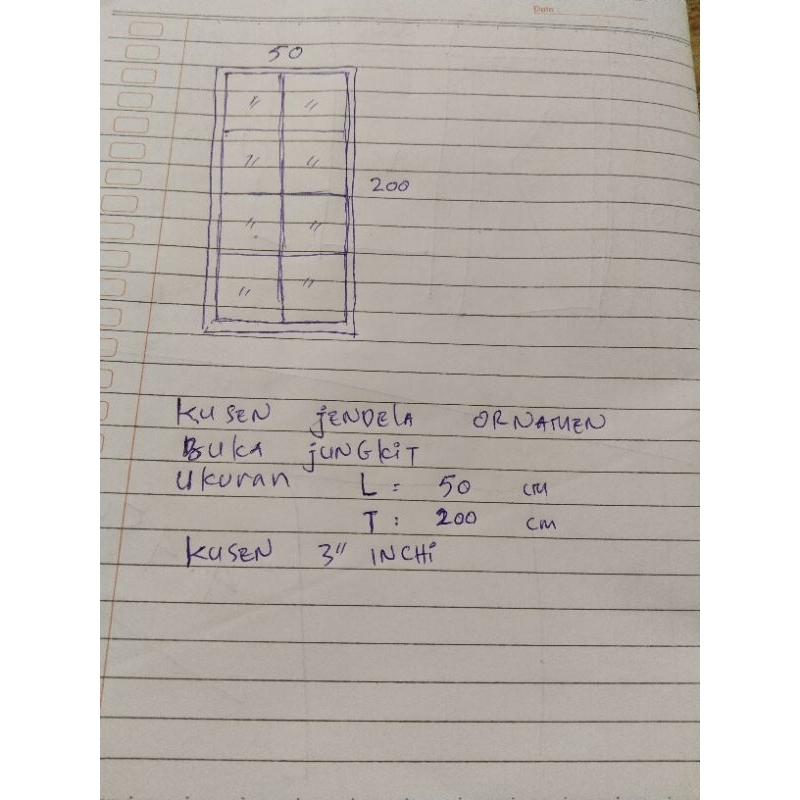 Date
50
200
KUSEN jENDELA ORNAMEN
BUKA jUNGKIT
Ukuran L = 50 cm
T : 200 cm
KUSEN 3" INCHi